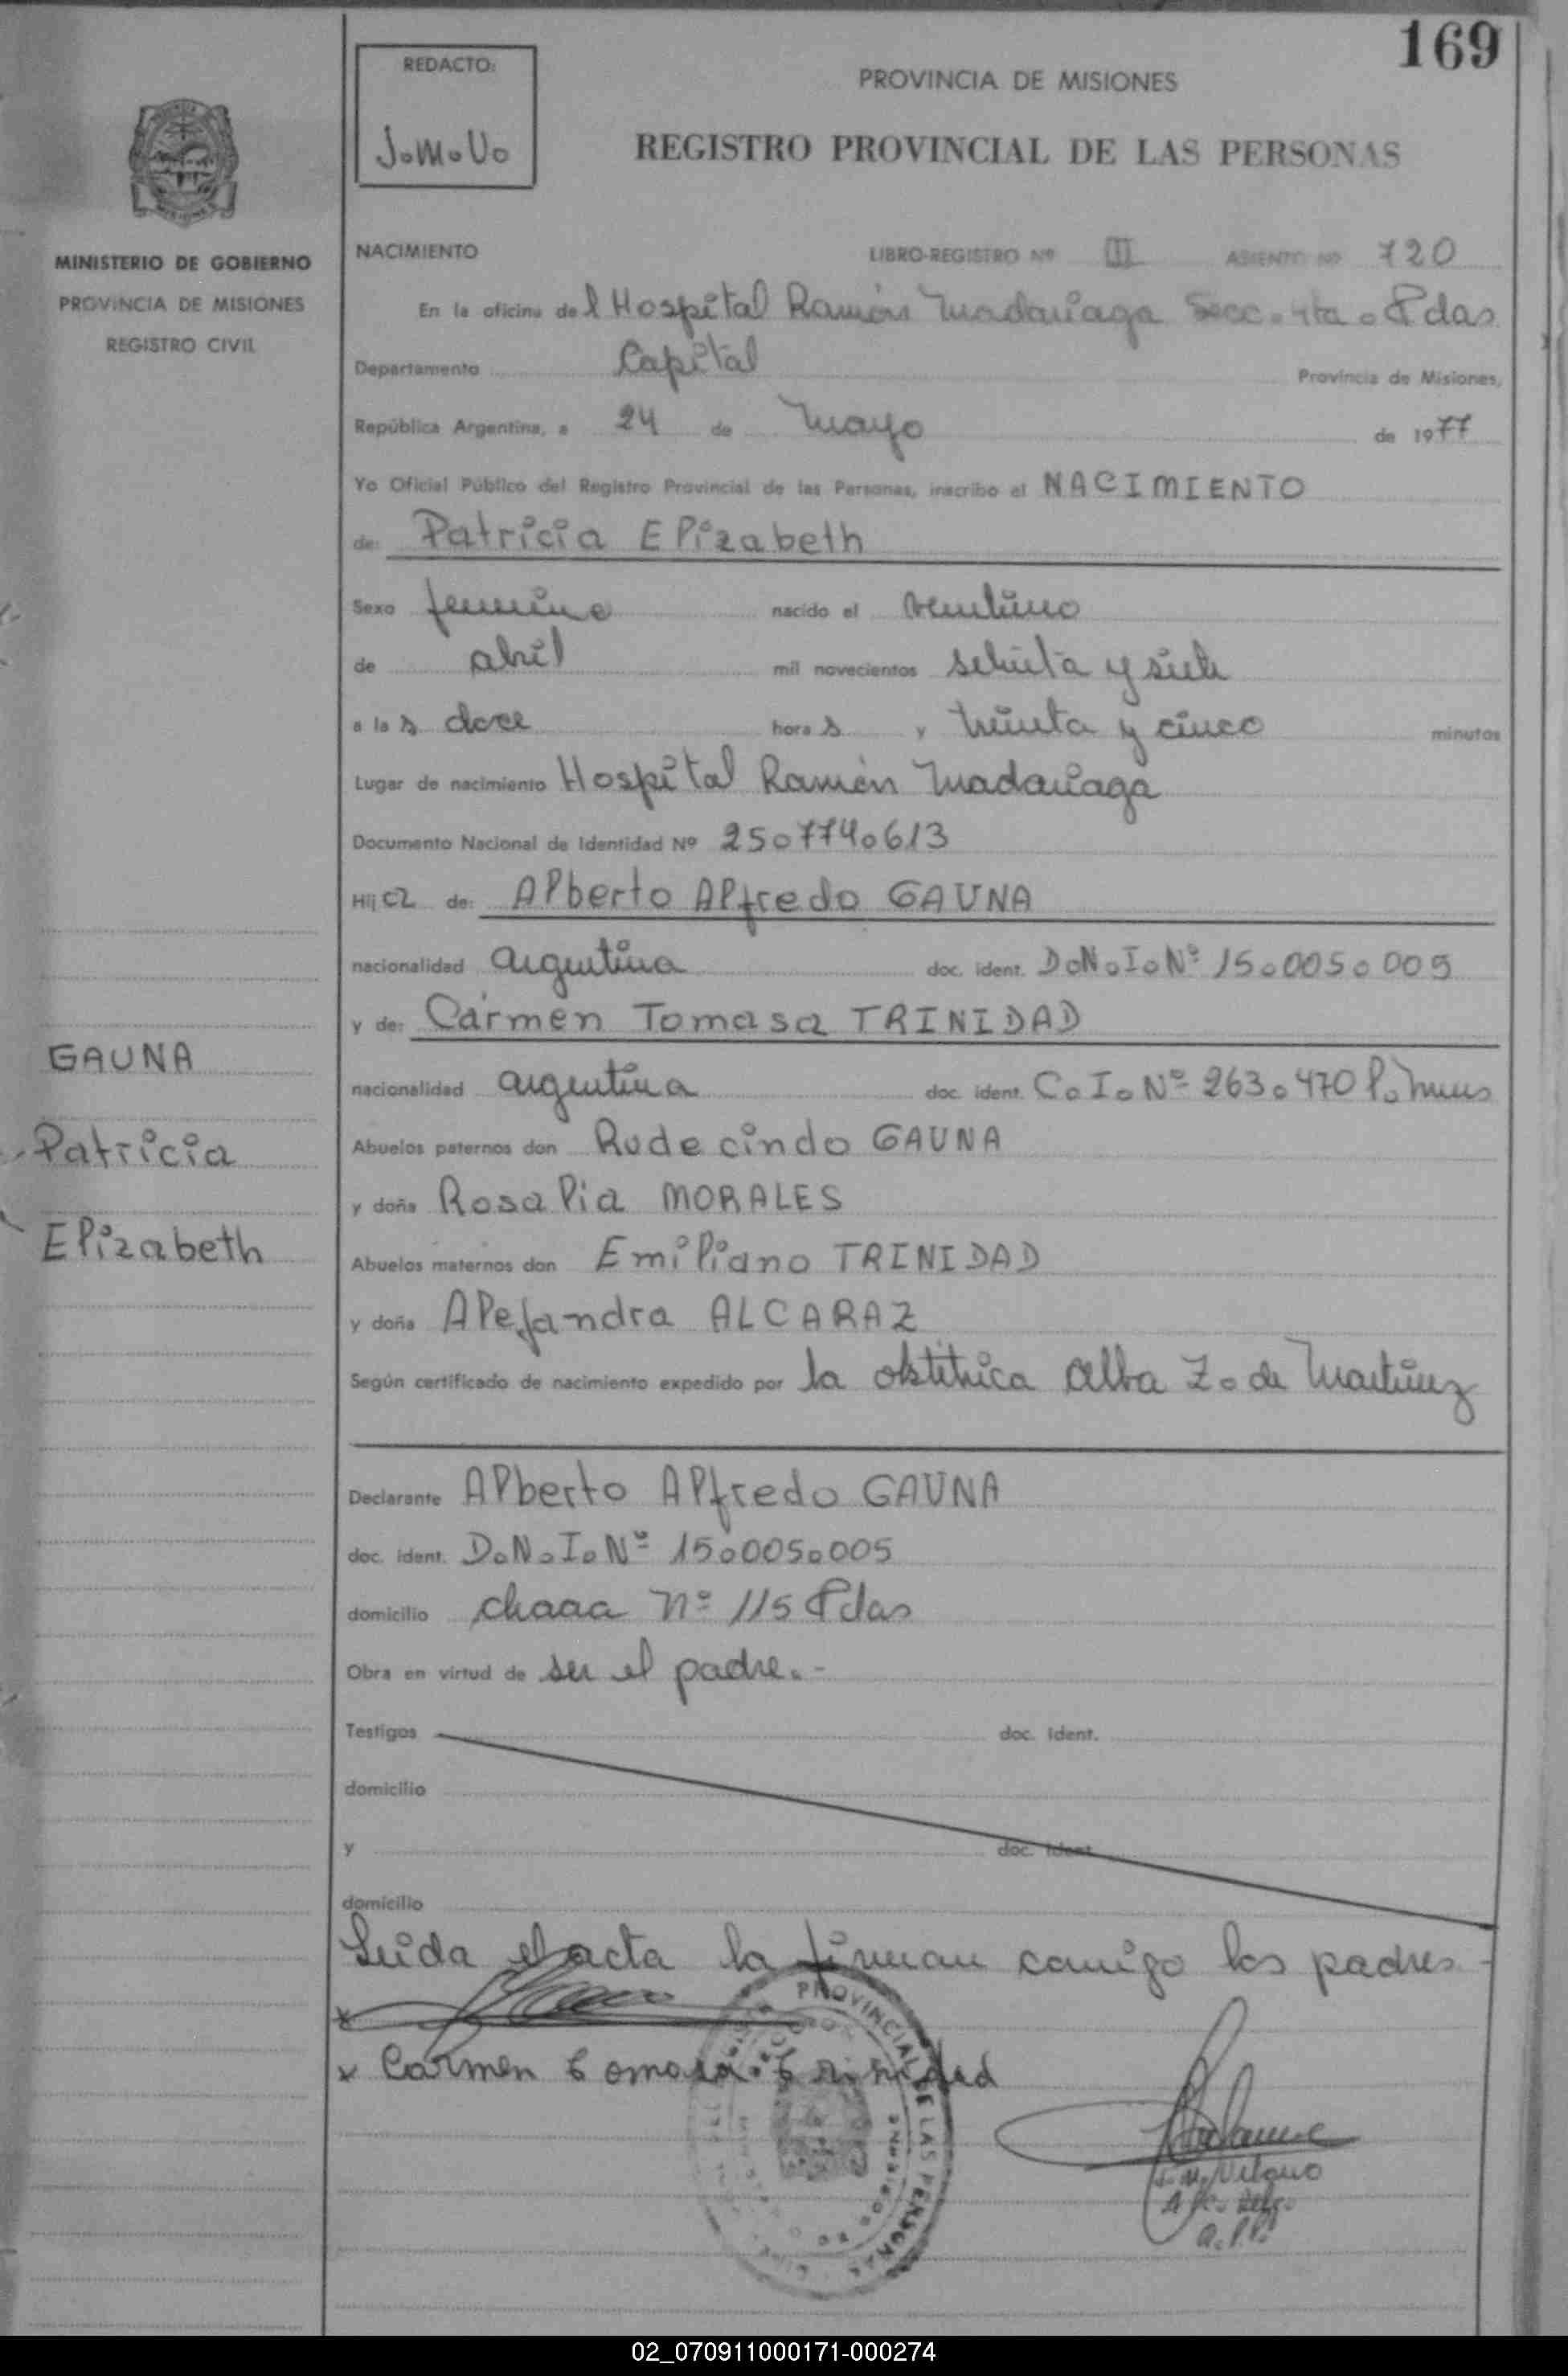 169
REDACTO:
J.M.V.
PROVINCIA DE MISIONES
REGISTRO PROVINCIAL DE LAS PERSONAS
MINISTERIO DE GOBIERNO
PROVINCIA DE MISIONES
REGISTRO CIVIL
NACIMIENTO LIBRO-REGISTRO Nº III ASIENTO Nº 720
En la oficina del Hospital Ramón Madariaga Secc. 4ta. Pdas
Departamento Capital Provincia de Misiones,
República Argentina, a 24 de Mayo de 1977
Yo Oficial Público del Registro Provincial de las Personas, inscribo el NACIMIENTO
de: Patricia Elizabeth
Sexo femenino nacido el veintiuno
de abril mil novecientos setenta y siete
a las doce horas y treinta y cinco minutos
Lugar de nacimiento Hospital Ramón Madariaga
Documento Nacional de Identidad Nº 25.774.613
Hija de: Alberto Alfredo GAUNA
nacionalidad argentina doc. ident. D.N.I.Nº 15.005.005
y de: Carmen Tomasa TRINIDAD
GAUNA
nacionalidad argentina doc. ident. C.I.Nº 263.470 P. Mnes
Patricia
Abuelos paternos don Rudecindo GAUNA
y doña Rosalia MORALES
Elizabeth
Abuelos maternos don Emiliano TRINIDAD
y doña Alejandra ALCARAZ
Según certificado de nacimiento expedido por la obstetrica Alba Z. de Martinez
Declarante Alberto Alfredo GAUNA
doc. ident. D.N.I.Nº 15.005.005
domicilio chaca Nº 115 Pdas
Obra en virtud de ser el padre.-
Testigos doc. ident.
domicilio
y doc. ident.
domicilio
Leida el acta la firman conmigo los padres.-
x
x Carmen tomasa trinidad
PROVINCIAL DE LAS PERSONAS
02_070911000171-000274